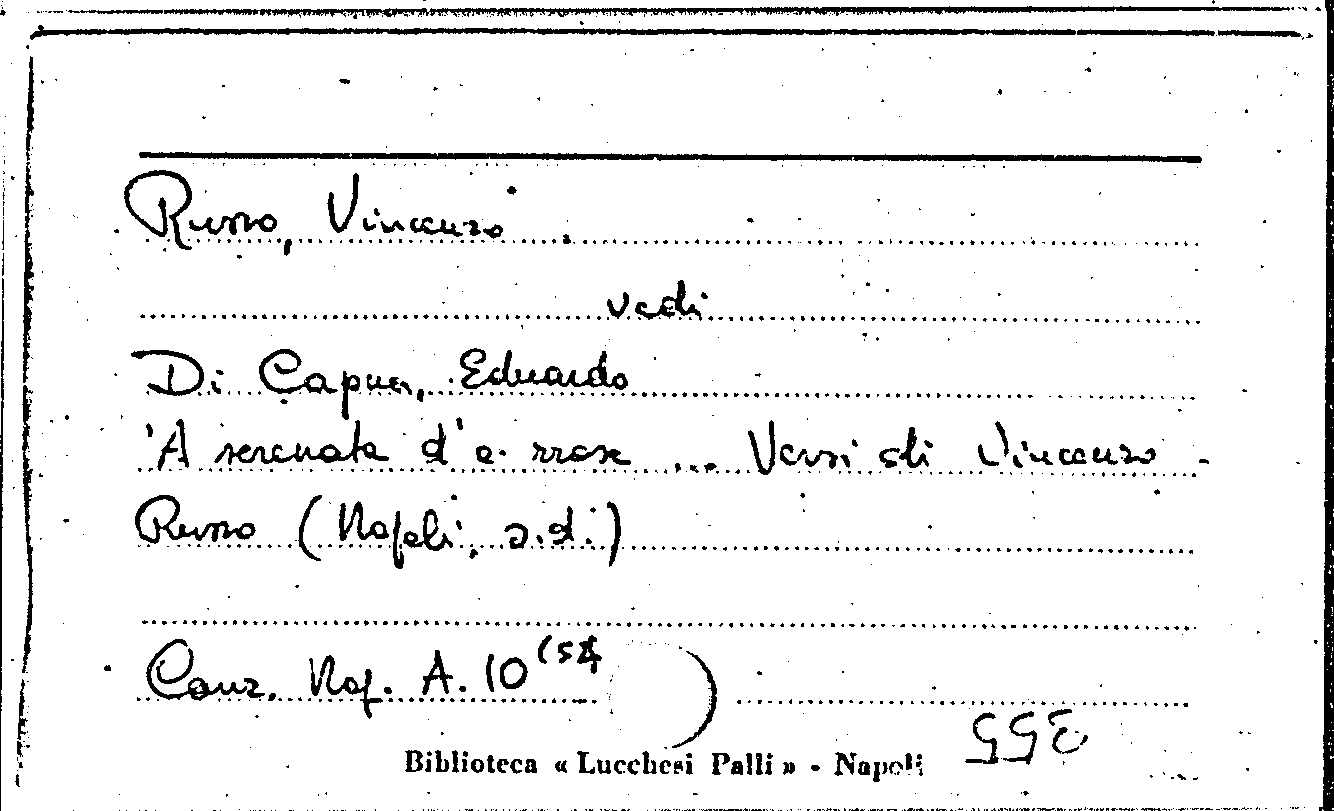 Russo, Vincenzo.
vedi
Di Capua, Eduardo
'A serenata d'e rrose ... Versi di Vincenzo
Russo (Napoli, s.d.)
Canz. Nap. A. 10 (54
Biblioteca « Lucchesi Palli » - Napoli